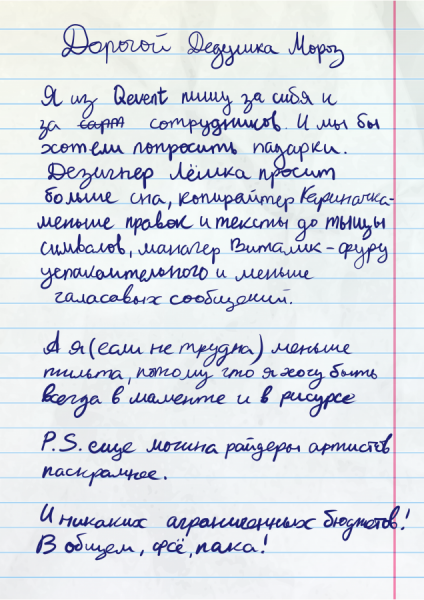 Дорогой Дедушка Мороз
Я из Qevent пишу за сибя и
за сарт сотрудников. И мы бы
хотели попросить падарки.
Дезигнер Лёшка просит
больше сна, копирайтер Кариначка-
меньше правок и тексты до тыщы
симвалов, манагер Виталик - фуру
успакаительного и меньше
галасавых сообщений.
А я (если не трудна) меньше
тильта, потому что я хочу быть
всегда в маменте и в рисурсе
P.S. еще можна райдеры артистов
паскрамнее.
И никаких аграниченных бюджетов!
В общем, фсё, пака!